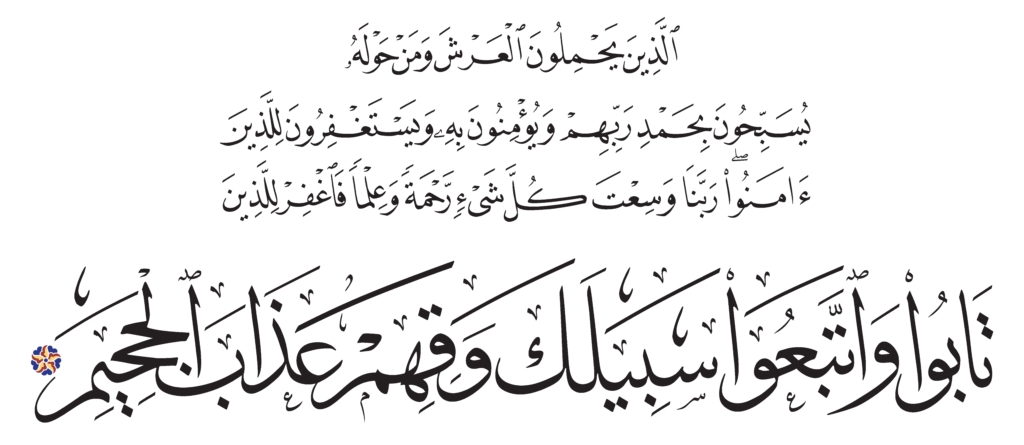 ٱلَّذِينَ يَحْمِلُونَ ٱلْعَرْشَ وَمَنْ حَوْلَهُۥ
يُسَبِّحُونَ بِحَمْدِ رَبِّهِمْ وَيُؤْمِنُونَ بِهِۦ وَيَسْتَغْفِرُونَ لِلَّذِينَ
ءَامَنُوا۟ۖ رَبَّنَا وَسِعْتَ كُلَّ شَىْءٍ رَّحْمَةً وَعِلْمًا فَٱغْفِرْ لِلَّذِينَ
تَابُوا۟ وَٱتَّبَعُوا۟ سَبِيلَكَ وَقِهِمْ عَذَابَ ٱلْجَحِيمِ